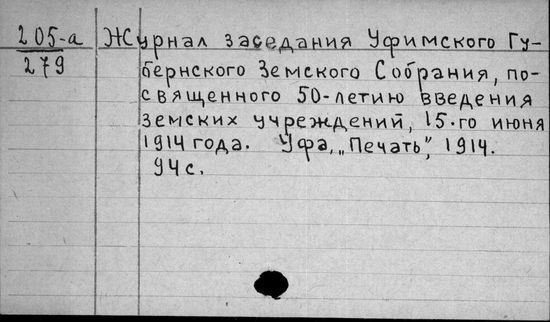 205-а Журнал заседания Уфимского Гу-
279 бернского Земского Собрания, по-
священного 50-летию введения
земских учреждений, 15-го июня
1914 года. Уфа, „Печать", 1914.
94 с.